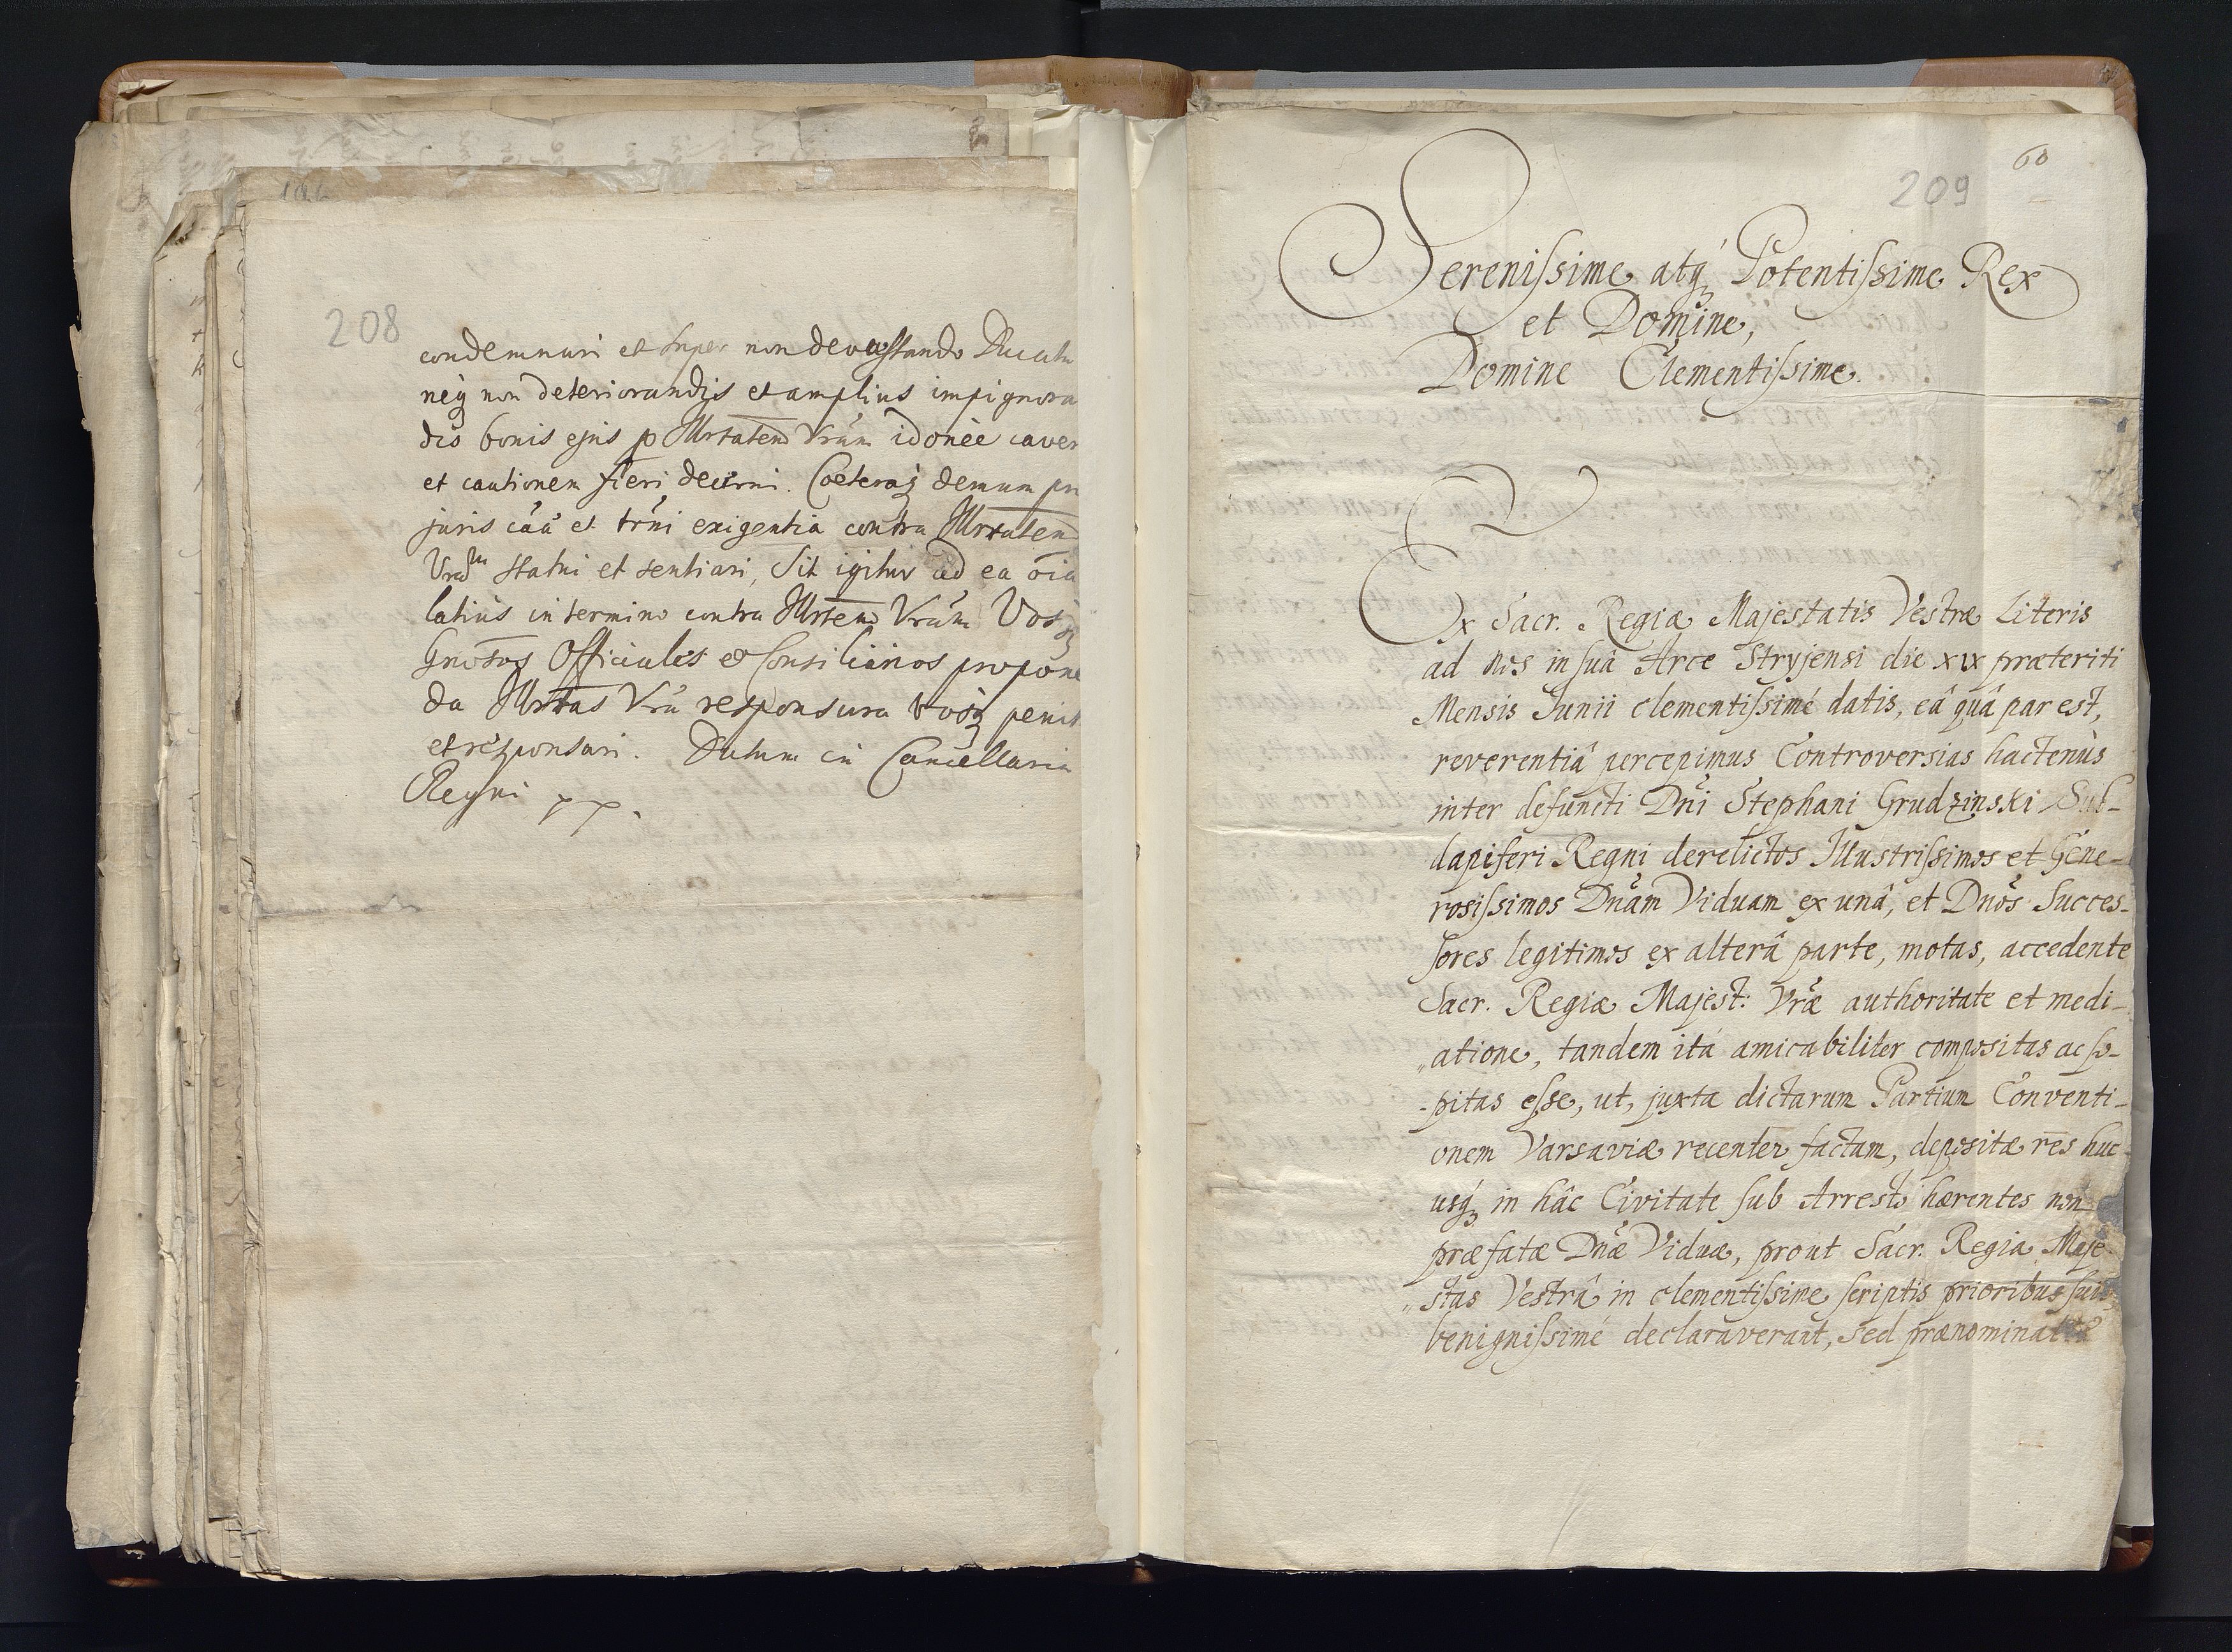 208
condemnari et super non devastando Ducatu
neq non deteriorandis et amplius impignora
dis bonis ejus p Illrtatem Vram idonèe caver
et cautionem fieri decerni. Coeteraq demum pro
juris cāā et trni exigentia contra Illrtatem
Vram statui et sentiari, Sit igitur ad ea oia
latius in termino contra Illrtem Vram Vosq
Gnosos Officiales et Consiliarios propone
da Illrtas Vra responsura Vosq
et responsuri. Datum in Cancellaria
Regni pp.
60
209
Serenissime atq Potentissime Rex
et Domine,
Domine Clementissime.
Ex Sacr. Regiæ Majestatis Vestræ Literis
ad nos in suâ Arce Stryjensi die XIX præteriti
Mensis Junii clementissimé datis, eâ quâ par est,
reverentiâ percepimus Controversias hactenùs
inter defuncti Dni Stephani Grudzinski Sub-
dapiferi Regni derelictos Illustrissimos et Gene-
rosissimos Dnam Viduam ex unâ, et Dnos Succes-
sores legitimos ex alterâ parte, motas, accedente
Sacr. Regiæ Majest: Vræ authoritate et medi-
atione, tandem itá amicabiliter compositas ac so-
-pitas esse, ut, juxta dictarum Partium Conventi-
onem Varsaviæ recenter factam, depositæ res huc-
usq in hâc Civitate sub Arresto hærentes non
præfatæ Dnæ Viduæ, prout Sacr. Regia Maje-
stas Vestrâ in clementissime scriptis prioribus suis
benignissimé declaraverant, sed prænominatæ